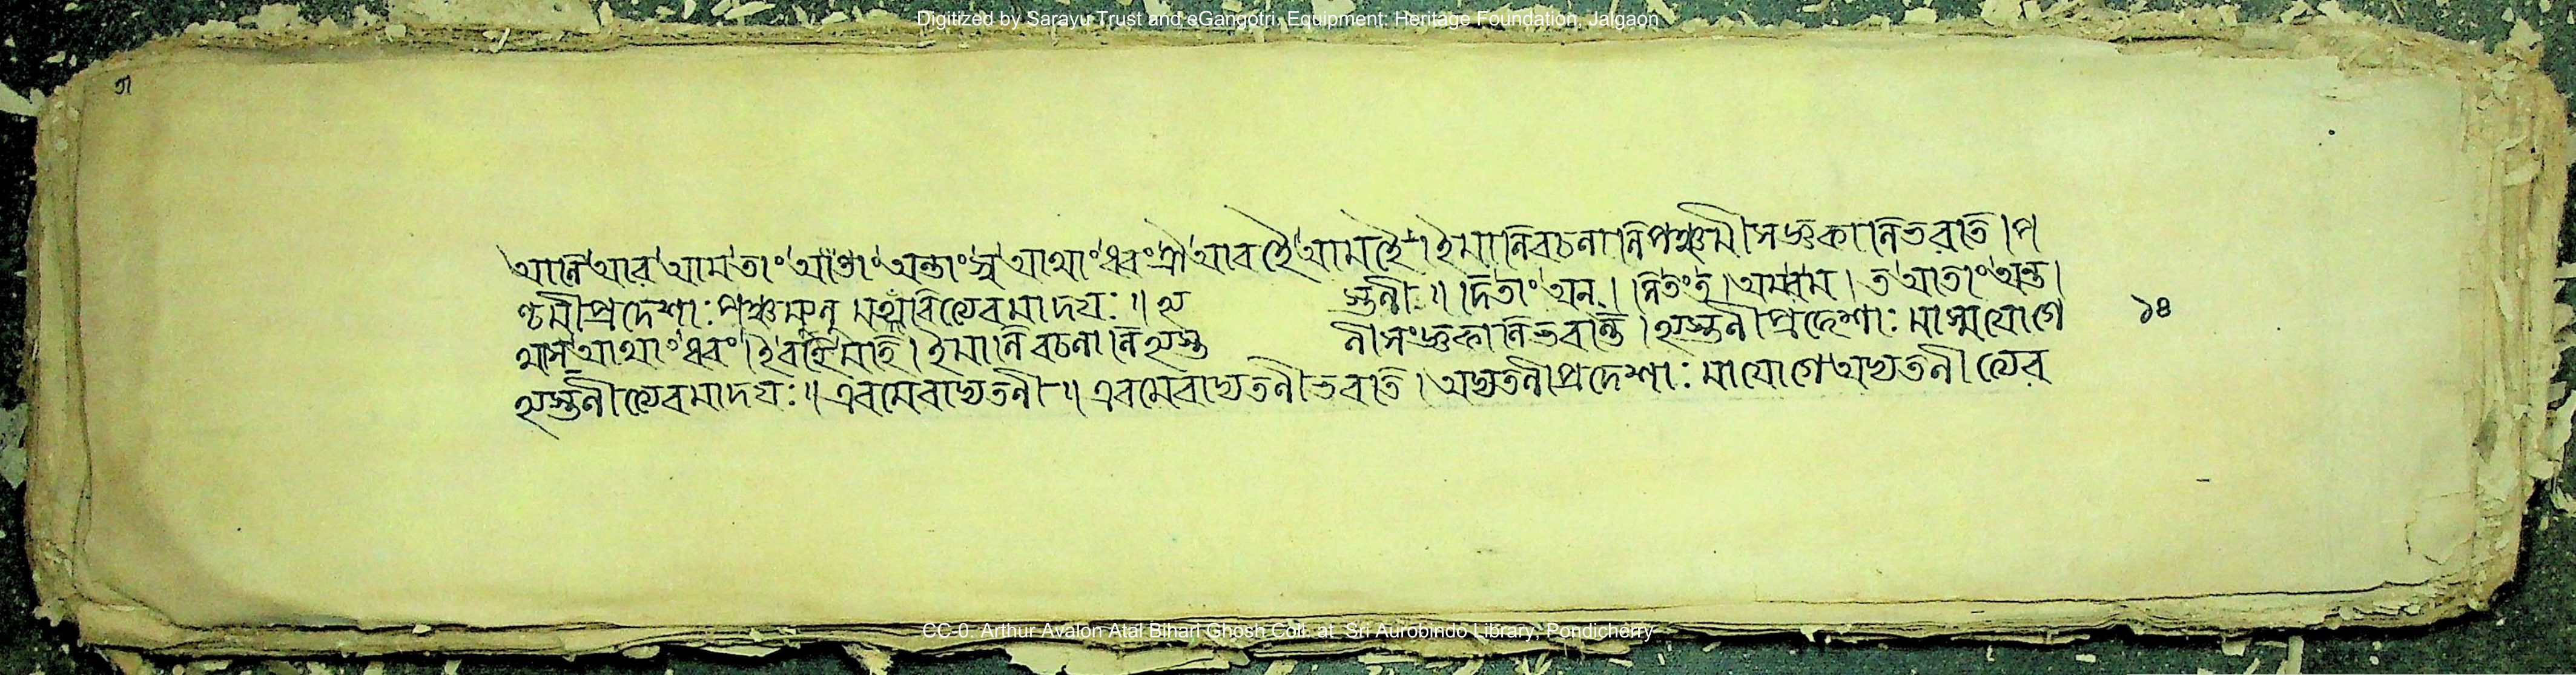 Digitized by Sarayu Trust and eGangotri. Equipment: Heritage Foundation, Jalgaon
আনি আব আম তাং আতাং অন্তাং স্ব আথাং ধ্বং ঐ আবহৈ আমহৈ । ইমানি বচনানি পঞ্চমীসঞ্জ্ঞকানি ভবতি । প
ঞ্চমীপ্রদেশাঃ পঞ্চম্যনু ইত্যেবমাদয়ঃ ॥ হ্য স্তনী ॥ দি তাং অন্ । সি তং ত । অম্ ব ম । ত আতাং অন্ত ।
থাস্ আথাং ধ্বং । ই বহি মহি । ইমানি বচনানি হ্যস্ত নীসংজ্ঞকানি ভবন্তি । হ্যস্তনীপ্রদেশাঃ মাস্মযোগে
১৪
হ্যস্তনীত্যেবমাদয়ঃ ॥ এবমেবাদ্যতনী ॥ এবমেবাদ্যতনী ভবতি । অদ্যতনীপ্রদেশাঃ মাযোগে অদ্যতনীত্যেব
CC-0. Arthur Avalon Atal Bihari Ghosh Coll. at Sri Aurobindo Library, Pondicherry